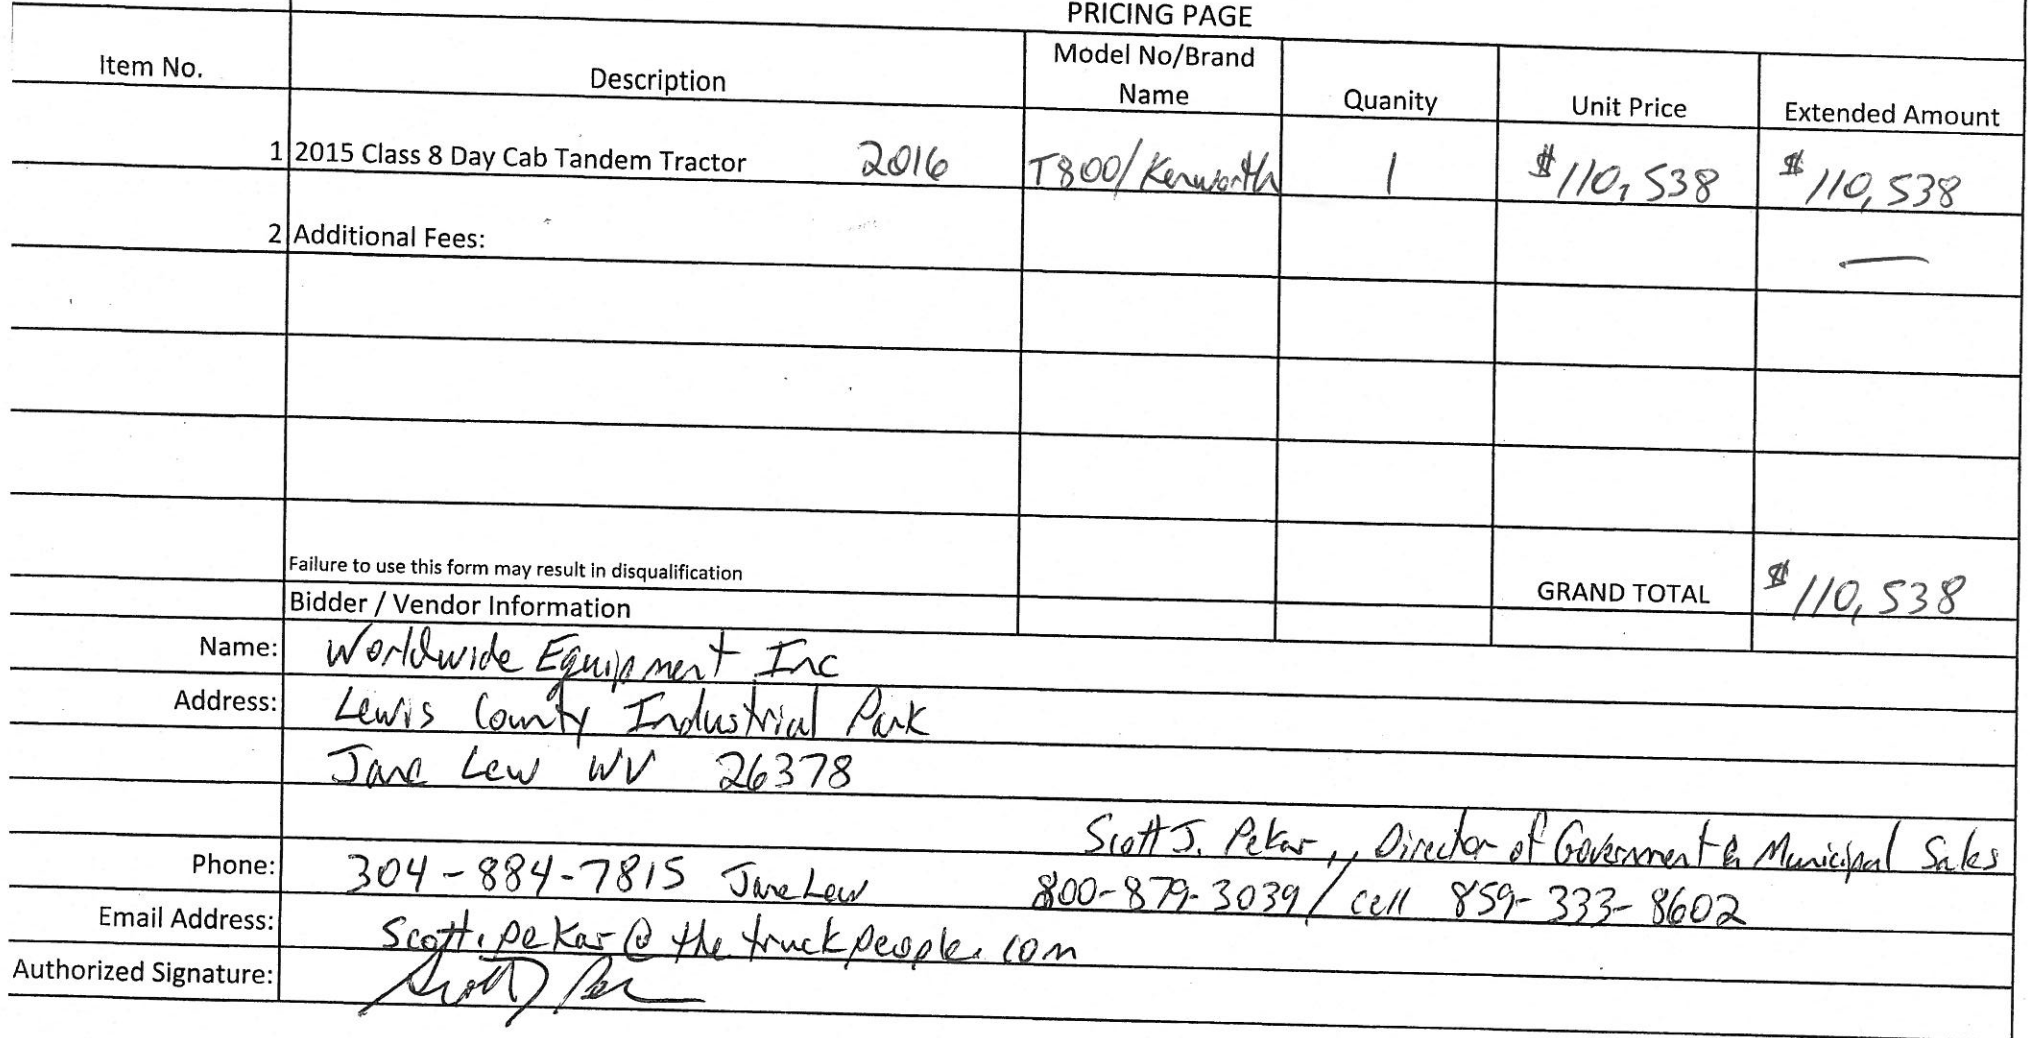 PRICING PAGE
Item No. Description Model No/Brand Name Quanity Unit Price Extended Amount
1 2015 Class 8 Day Cab Tandem Tractor 2016 T800/Kenworth 1 $110,538 $110,538
2 Additional Fees: —
Failure to use this form may result in disqualification
GRAND TOTAL $110,538
Bidder / Vendor Information
Name: Worldwide Equipment Inc
Address: Lewis County Industrial Park
Jane Lew WV 26378
Scott J. Pekar,, Director of Government & Municipal Sales
Phone: 304-884-7815 Jane Lew 800-879-3039/ cell 859-333-8602
Email Address: Scott.pekar@thetruckpeople.com
Authorized Signature: